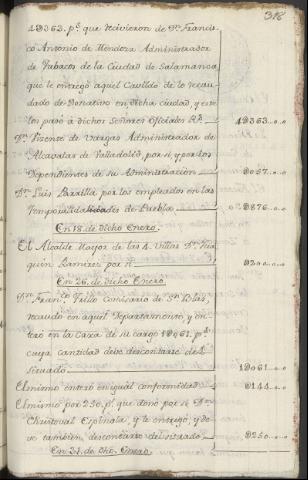 318
4D363. p.s que recivieron de Dn. Francis-
co Antonio de Mendoza Administrador
de Tabacos de la Ciudad de Salamanca,
que le entregó aquel Cavildo de lo recau-
dado de Donativo en dicha ciudad, y este
los pasó a dichos Señores Oficiales R.s 4D363..0..0
Dn. Vicente de Vargas Administrador de
Alcavalas de Valladolid, por sí, y por los
Dependientes de su Administracion D057..0..0
Dn. Luis Barilla por los empleados en las
Temporalidades de Puebla D876..0..0
En 18. de dicho Enero.
El Alcalde Mayor de las 4. Villas Dn. Joa-
quin Ramirez por sí D200..0..0
En 26. de dicho Enero
Dn. Fran.co Trillo Comisario de Sn. Blas,
recaudó en aquel Departamento, y en-
teró en la Caxa de su cargo 1D061. p.s
cuya cantidad debe descontarse del
Situado 1D061..0..0
El mismo enteró en igual conformidad D144..0..0
El mismo por 250. p.s que donó por sí Dn.
Christoval Espinola, y le entregó, y de-
ve tambien descontarse del situado D250..0..0
En 31. de dho. Enero